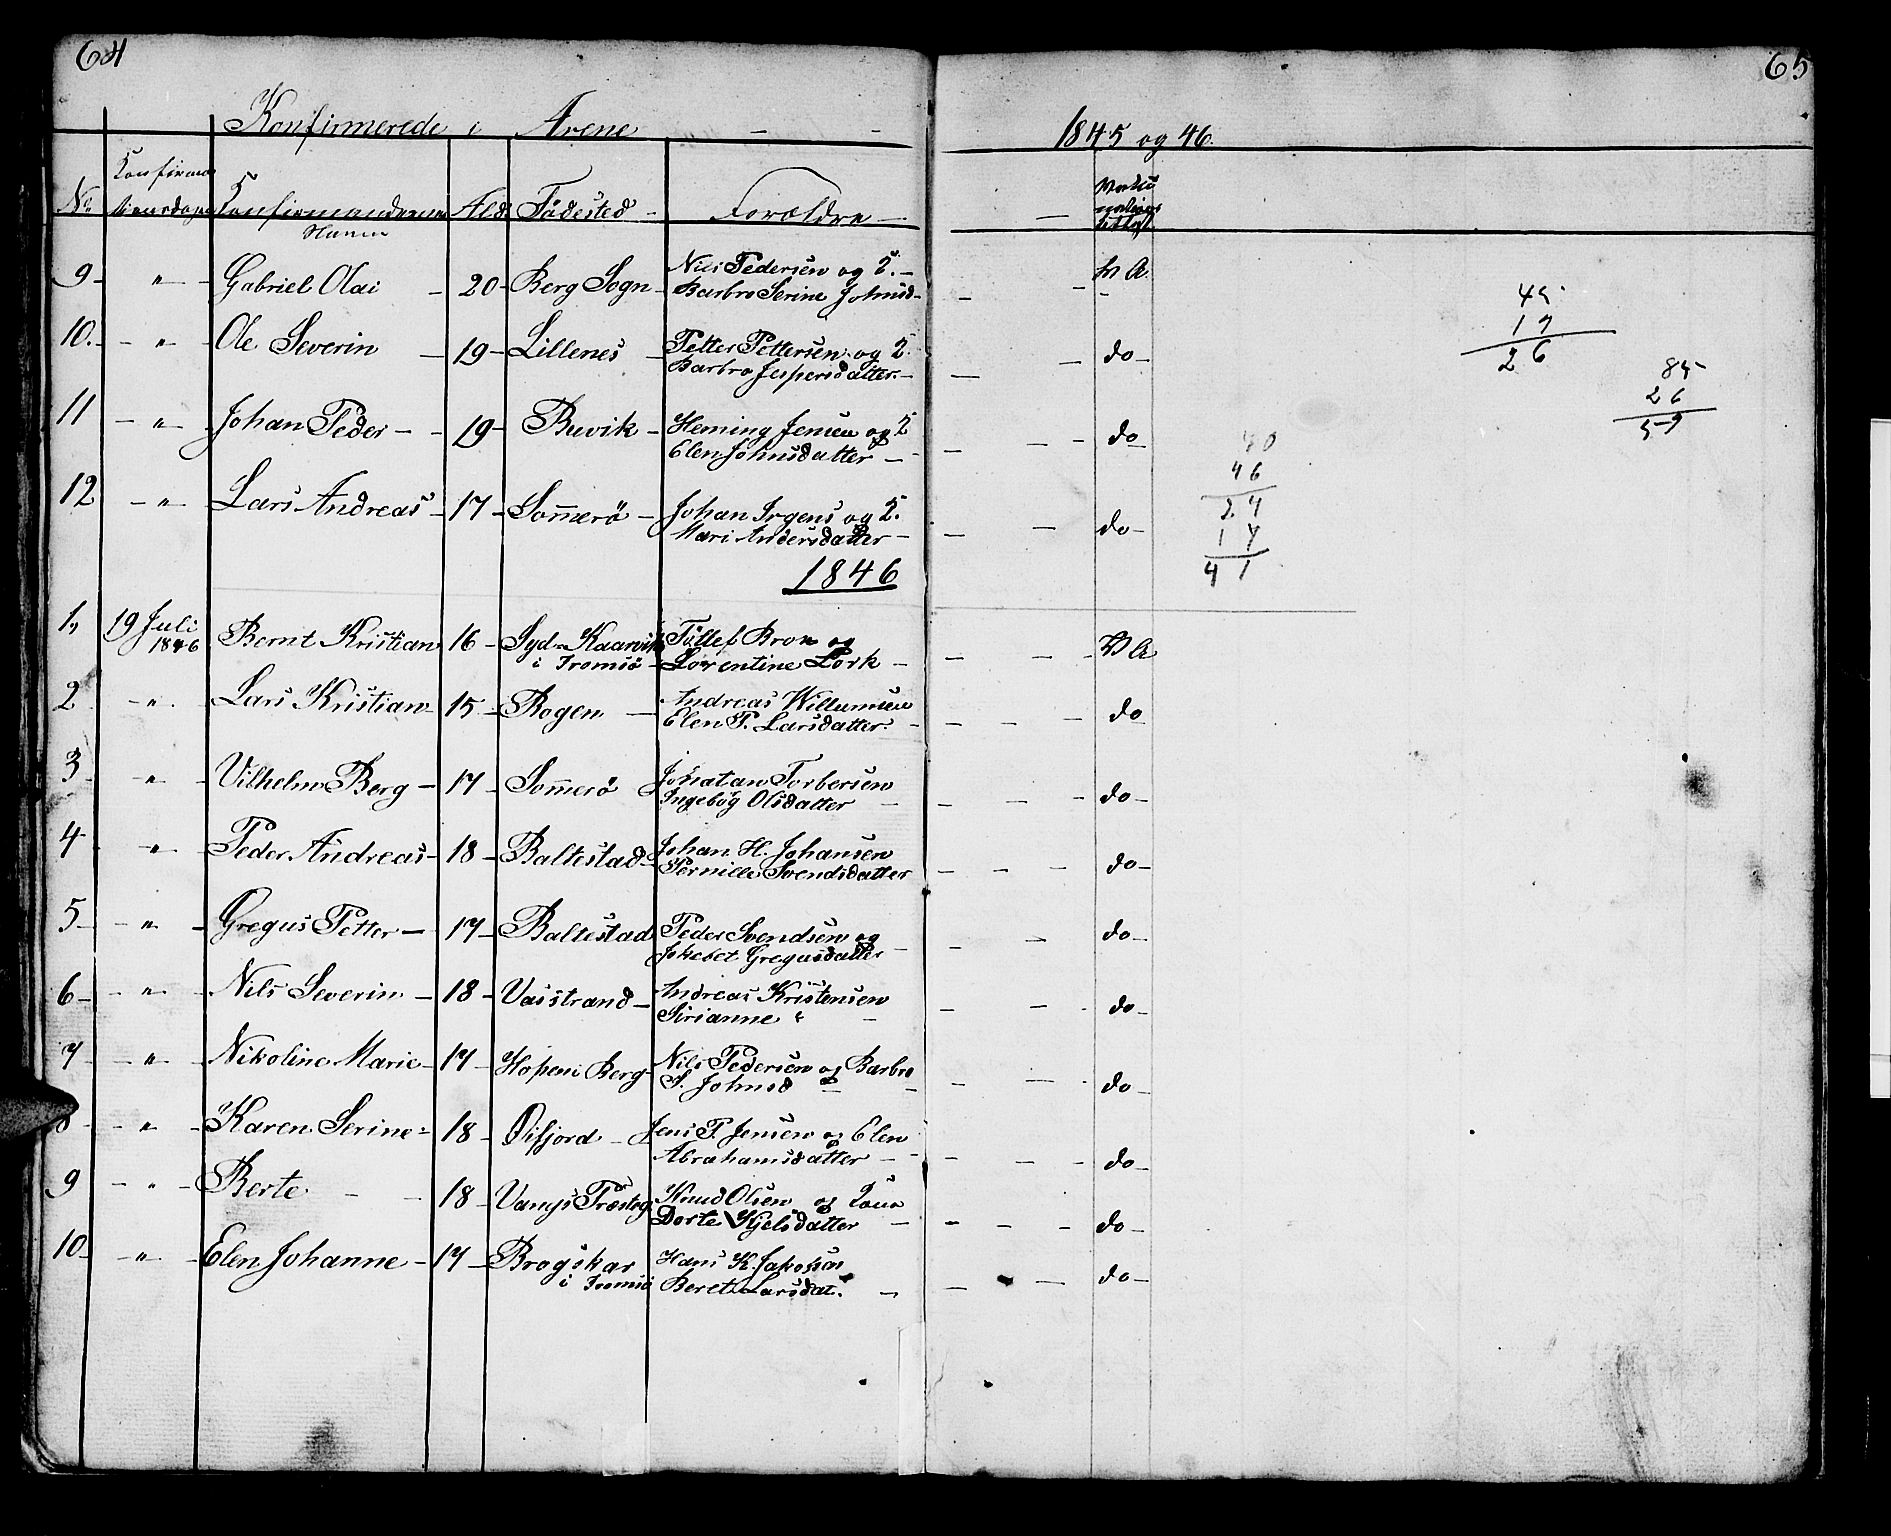 64
65
Konfirmerede i Arene - -
1845 og 46.
No. Konfirma tionsdagen Konfirmandernes Navn Ald. Födested - Forældre -
9 - " - Gabriel Olai - 20 - Berg Sogn - Nils Pedersen og
Barbro Serine Johnsd - - - V A.
10. - " - Ole Severin - 19 - Lillenes - Petter Pettersen og
Barbro Jespersdatter. - - - do -
11 - " - Johan Peder - - 19 - Buvik - Heming Jensen og
Elen Johnsdatter - - - - do
12 - " - Lars Andreas - 17 - Sommerö - Johan Irgens og
Mari Andersdatter - - - do -
1846
1. 19 Juli 1846 Bernt Kristian 16 - Syd-Kaarvik i Tromsö - Tollef Bron og
Lorentine Lork - - - - V A
2 - " - Lars Kristian - 15 - Bogen - Andreas Willumsen
Elen P. Larsdatter. - - - - do
3 - " - Vilhelm Berg - 17 - Sommerö Jonatan Torbersen
Ingebög Olsdatter - - - - do -
4 - " - Peder Andreas - 18 - Baltestad - Johan H. Johansen
Pernille Svendsdatter - - - do -
5 - " - Gregus Petter - 17 - Baltestad Peder Svendsen og
Jokebet Gregusdatter - - - do -
6 - " - Nils Severin - 18 - Vasstrand - Andreas Kristensen
Sirianne " - - - do -
7 - " - Nikoline Marie - 17 - Hopen i Berg - Nils Pedersen og Barbro
S. Johnsd - - - - do -
8 - " - Karen Serine - 18 - Öifjord - Jens P. Jensen og Elen
Abrahamsdatter - - - - do -
9 - " - Berte - - 18 - Vangs Præsteg. Knud Olsen og Kone
Dorte Kjelsdatter - - - - do -
10 - " - Elen Johanne - 17 - Brogskar i Tromsö Hans K. Jakobsen
Beret Larsdat. - - - do -
45
17
26
85
26
59
70
46
24
17
41